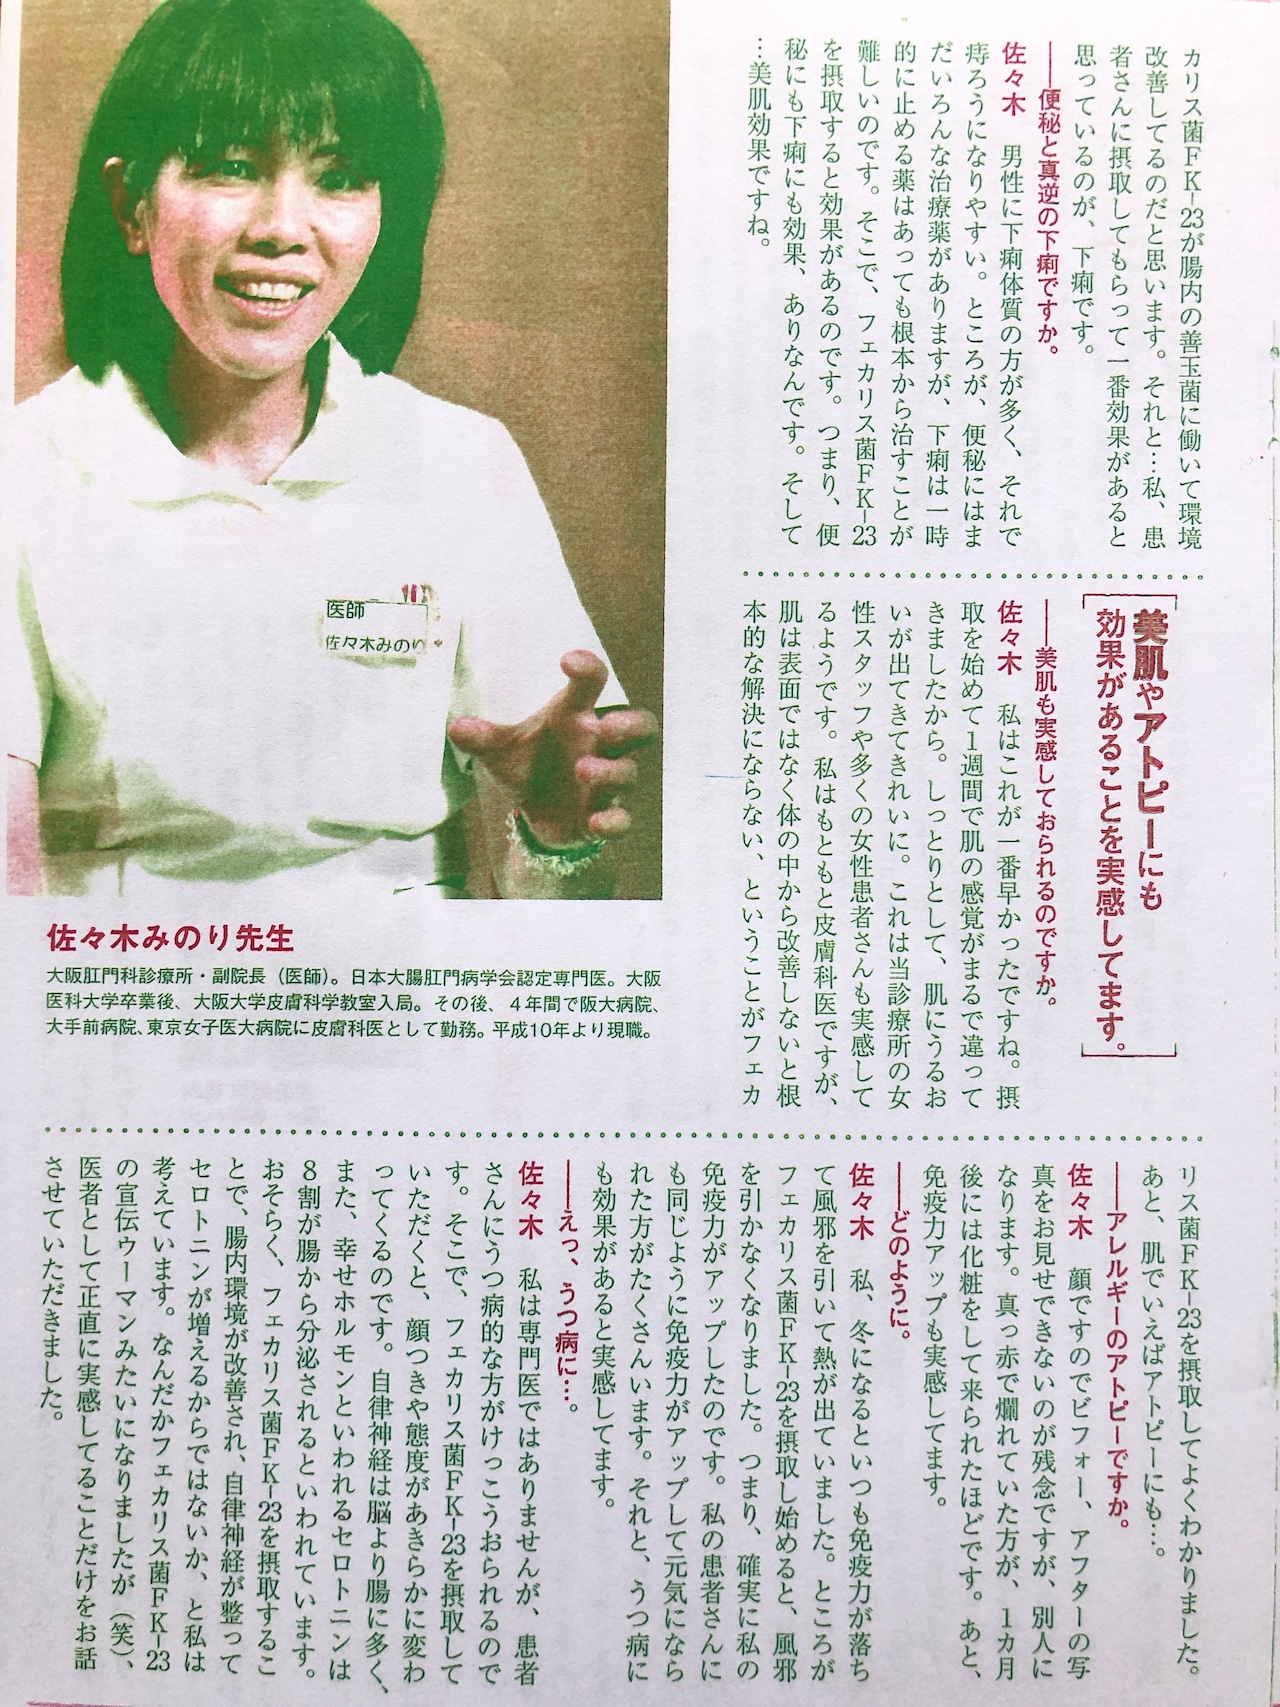 カリス菌FK-23が腸内の善玉菌に働いて環境
改善してるのだと思います。それと…私、患
者さんに摂取してもらって一番効果があると
思っているのが、下痢です。
――便秘と真逆の下痢ですか。
佐々木　男性に下痢体質の方が多く、それで
痔ろうになりやすい。ところが、便秘にはま
だいろんな治療薬がありますが、下痢は一時
的に止める薬はあっても根本から治すことが
難しいのです。そこで、フェカリス菌FK-23
を摂取すると効果があるのです。つまり、便
秘にも下痢にも効果、ありなんです。そして
…美肌効果ですね。
美肌やアトピーにも
効果があることを実感してます。
――美肌も実感しておられるのですか。
佐々木　私はこれが一番早かったですね。摂
取を始めて1週間で肌の感覚がまるで違って
きましたから。しっとりとして、肌にうるお
いが出てきてきれいに。これは当診療所の女
性スタッフや多くの女性患者さんも実感して
るようです。私はもともと皮膚科医ですが、
肌は表面ではなく体の中から改善しないと根
本的な解決にならない、ということがフェカ
医師
佐々木みのり
佐々木みのり先生
大阪肛門科診療所・副院長（医師）。日本大腸肛門病学会認定専門医。大阪
医科大学卒業後、大阪大学皮膚科学教室入局。その後、4年間で阪大病院、
大手前病院、東京女子医大病院に皮膚科医として勤務。平成10年より現職。
リス菌FK-23を摂取してよくわかりました。
あと、肌でいえばアトピーにも…。
――アレルギーのアトピーですか。
佐々木　顔ですのでビフォー、アフターの写
真をお見せできないのが残念ですが、別人に
なります。真っ赤で爛れていた方が、1カ月
後には化粧をして来られたほどです。あと、
免疫力アップも実感してます。
――どのように。
佐々木　私、冬になるといつも免疫力が落ち
て風邪を引いて熱が出ていました。ところが
フェカリス菌FK-23を摂取し始めると、風邪
を引かなくなりました。つまり、確実に私の
免疫力がアップしたのです。私の患者さんに
も同じように免疫力がアップして元気になら
れた方がたくさんいます。それと、うつ病に
も効果があると実感してます。
――えっ、うつ病に…。
佐々木　私は専門医ではありませんが、患者
さんにうつ病的な方がけっこうおられるので
す。そこで、フェカリス菌FK-23を摂取して
いただくと、顔つきや態度があきらかに変わ
ってくるのです。自律神経は脳より腸に多く、
また、幸せホルモンといわれるセロトニンは
8割が腸から分泌されるといわれています。
おそらく、フェカリス菌FK-23を摂取するこ
とで、腸内環境が改善され、自律神経が整って
セロトニンが増えるからではないか、と私は
考えています。なんだかフェカリス菌FK-23
の宣伝ウーマンみたいになりましたが（笑）、
医者として正直に実感してることだけをお話
させていただきました。